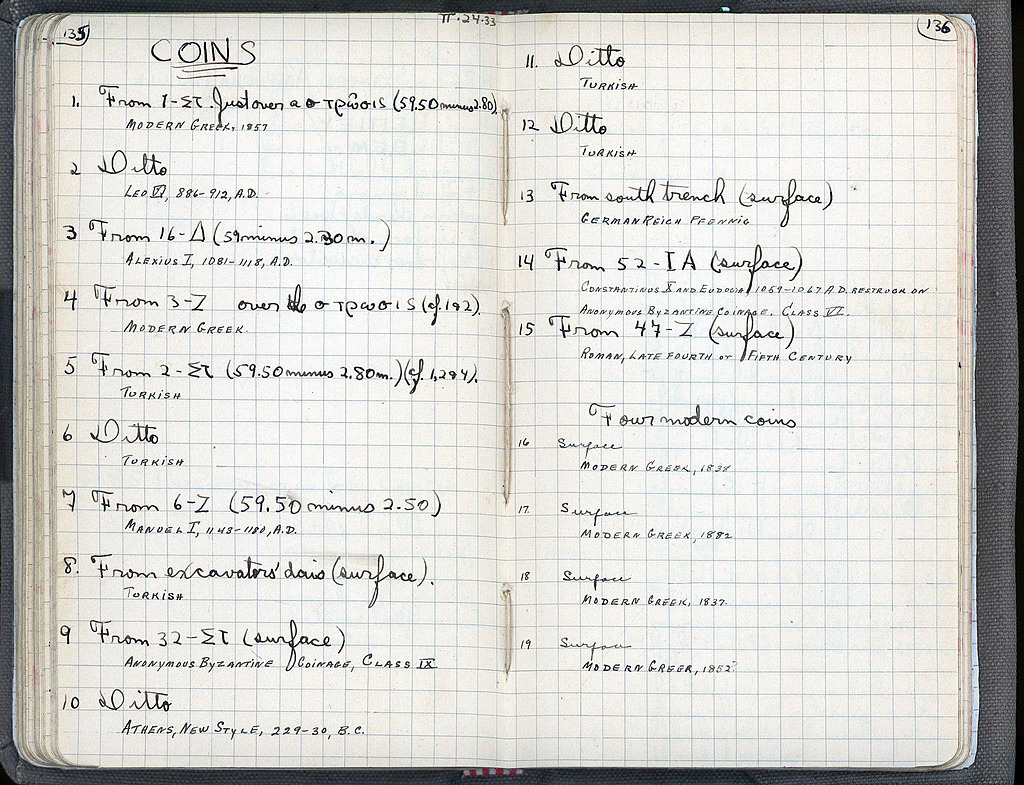 135
COINS
1. From 1-ΣΤ. Just over a στρῶσις (59.50 minus 2.80).
MODERN GREEK, 1857
2 Ditto
LEO VI, 886-912, A.D.
3 From 16-Δ (59 minus 2.30 m.)
ALEXIUS I, 1081-1118, A.D.
4 From 3-Z over the στρωσις (cf. 1&2).
MODERN GREEK.
5 From 2-ΣΤ (59.50 minus 2.80m.) (cf. 1, 2&4).
TURKISH
6 Ditto
TURKISH
7 From 6-Z (59.50 minus 2.50)
MANUEL I, 1143-1180, A.D.
8. From excavators' dais (surface).
TURKISH
9 From 32-ΣΤ (surface)
ANONYMOUS BYZANTINE COINAGE, CLASS IX
10 Ditto
ATHENS, NEW STYLE, 229-30, B.C.
Π.24.33
136
11. Ditto
TURKISH
12 Ditto
TURKISH
13 From south trench (surface)
GERMAN REICH PFENNIG
14 From 52-IA (surface)
CONSTANTINUS X AND EUDOCIA, 1059-1067 A.D. RESTRUCK ON
ANONYMOUS BYZANTINE COINAGE. CLASS VI.
15 From 47-Z (surface)
ROMAN, LATE FOURTH OR FIFTH CENTURY
Four modern coins
16 Surface
MODERN GREEK,
17. Surface
MODERN GREEK, 1882
18 Surface
MODERN GREEK, 1837.
19 Surface
MODERN GREEK, 1852?